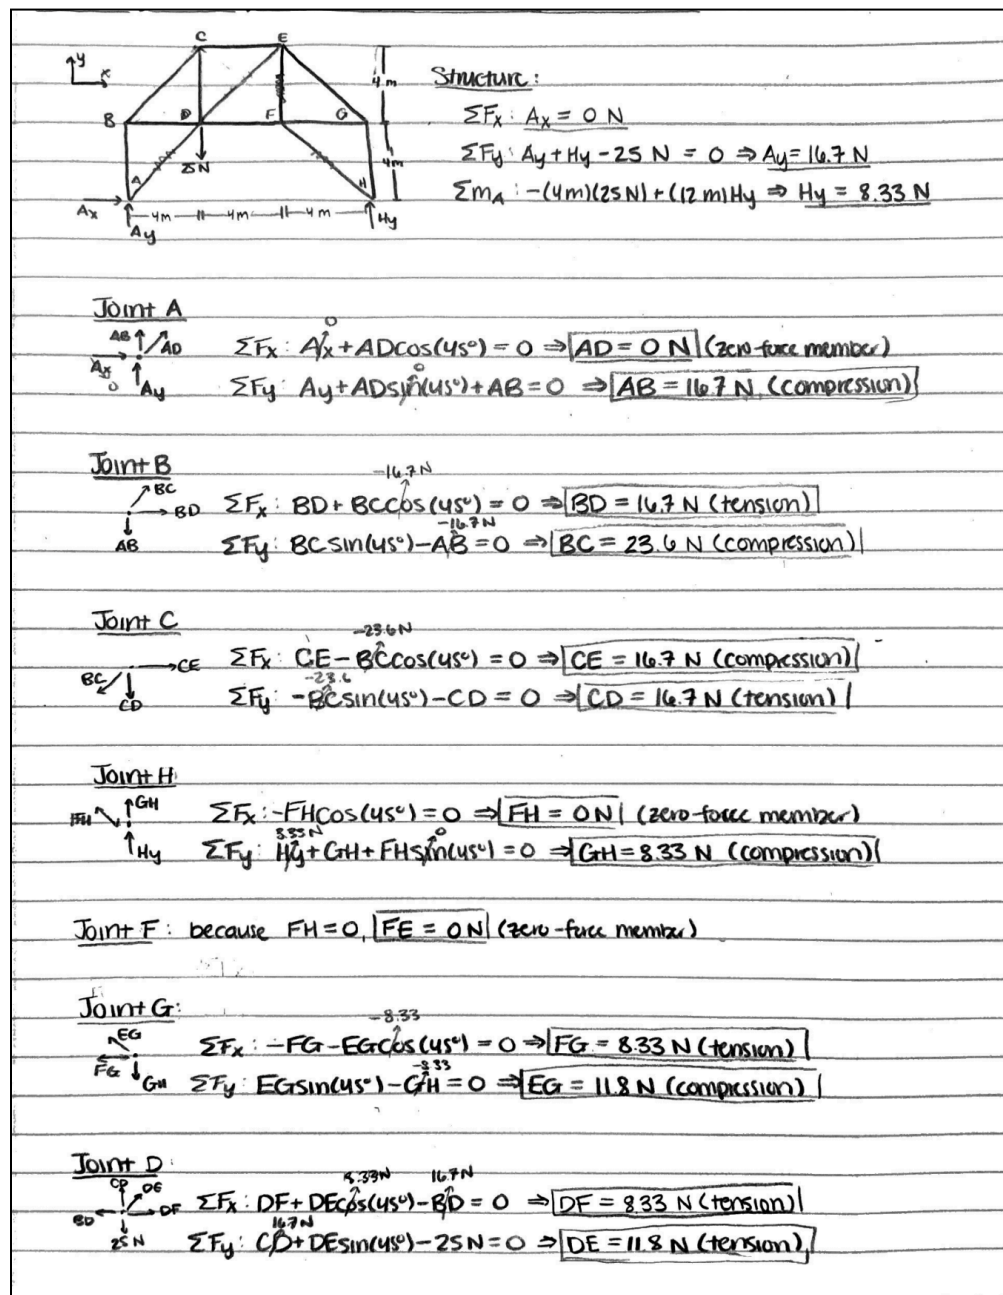 y
x
C E
4 m
B D F G
25N
4m
A H
Ax 4m 4m 4m Hy
Ay
Structure:
ΣFx: Ax = 0 N
ΣFy: Ay + Hy - 25 N = 0 ⇒ Ay = 16.7 N
ΣmA: -(4m)(25N) + (12 m)Hy ⇒ Hy = 8.33 N
Joint A
AB AD
Ax 0
Ay
0
ΣFx: Ax + ADcos(45°) = 0 ⇒ AD = 0 N (zero-force member)
0
ΣFy: Ay + ADsin(45°) + AB = 0 ⇒ AB = 16.7 N (compression)
Joint B
BC
BD
AB
-16.7 N
ΣFx: BD + BCcos(45°) = 0 ⇒ BD = 16.7 N (tension)
-16.7 N
ΣFy: BCsin(45°) - AB = 0 ⇒ BC = 23.6 N (compression)
Joint C
CE
BC
CD
-23.6 N
ΣFx: CE - BCcos(45°) = 0 ⇒ CE = 16.7 N (compression)
-23.6
ΣFy: -BCsin(45°) - CD = 0 ⇒ CD = 16.7 N (tension)
Joint H
FH GH
Hy
ΣFx: -FHcos(45°) = 0 ⇒ FH = 0 N (zero-force member)
8.33 N 0
ΣFy: Hy + GH + FHsin(45°) = 0 ⇒ GH = 8.33 N (compression)
Joint F: because FH = 0, FE = 0 N (zero-force member)
Joint G:
EG
FG GH
-8.33
ΣFx: -FG - EGcos(45°) = 0 ⇒ FG = 8.33 N (tension)
-8.33
ΣFy: EGsin(45°) - GH = 0 ⇒ EG = 11.8 N (compression)
Joint D:
CD DE
BD DF
25 N
8.33N 16.7 N
ΣFx: DF + DEcos(45°) - BD = 0 ⇒ DF = 8.33 N (tension)
16.7 N
ΣFy: CD + DEsin(45°) - 25N = 0 ⇒ DE = 11.8 N (tension)